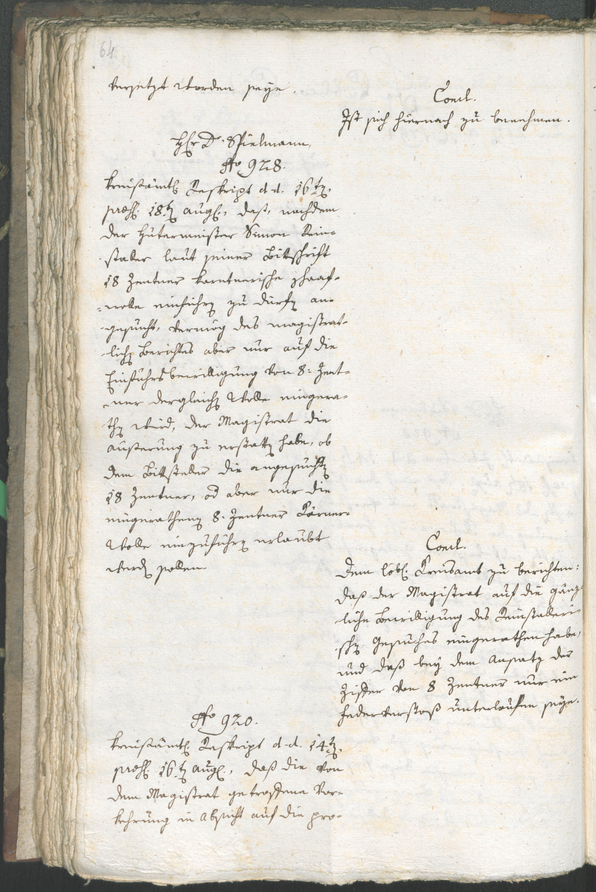 64.
versetzt worden seye.
Concl.
Ist sich hiernach zu benehmen.
Hr. Dr. Spielmann.
No. 928.
kreisämtl. Reskript d. d. 16ten
praes. 18t. augl., daß, nachdem
der Hutermeister Simon Rein-
staler laut seiner Bittschrift
18 Zentner karntnerische schaaf-
wolle einführen zu dürfen an-
gesucht, vermög des magistrat-
lichen Berichtes aber nur auf die
Einfuhrsbewilligung von 8: Zent-
ner dergleichen Wolle eingera-
then wird, der Magistrat die
äusserung zu erstatten habe, ob
dem Bittsteller die angesuchten
18 Zentner, od aber nur die
eingerathenen 8: Zentner
Wolle einzuführen erlaubt
werden sollen
Concl.
Dem löbl. Kreisamt zu berichten:
daß der Magistrat auf die gänz-
liche Bewilligung des Reinstaleri-
schen Gesuches eingerathen habe,
und daß bey dem Ansatz der
Ziffer von 8 Zentner nur ein
Federverstoß unterloffen seye.
No. 920.
kreisämtl. Reskript d. d. 14ten
praes. 16t. augl., daß die von
dem Magistrat getroffene Vor-
kehrung in Absicht auf die pro-